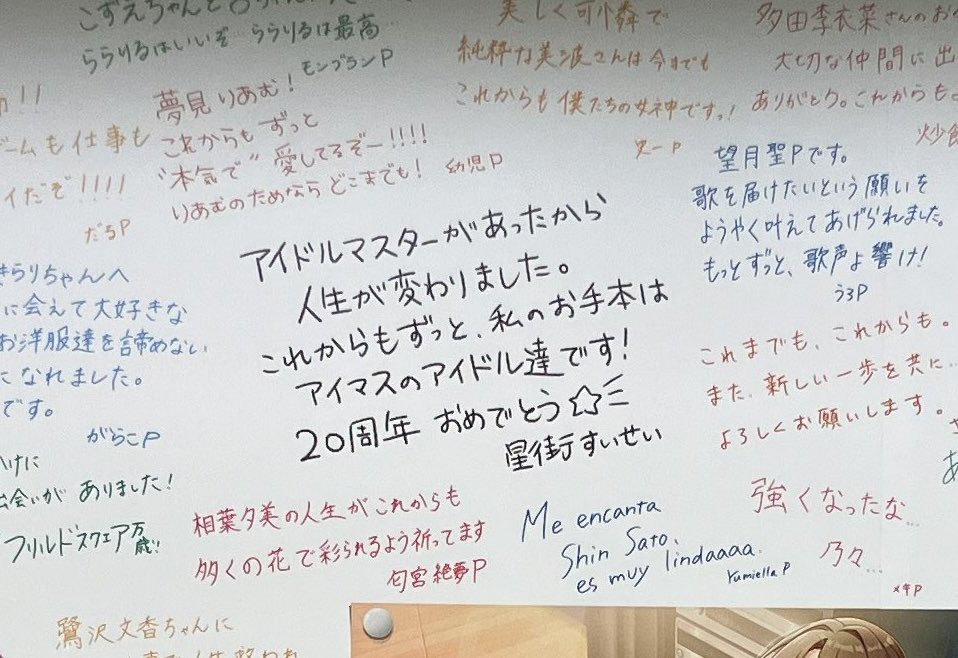 こずえちゃんと
ららりるはいいぞ ららりるは最高
モンブランP
美しく可憐で
純粋な美波さんは今までも
これからも僕たちの女神ですっ!
多田李衣菜さんのお
大切な仲間に出
ありがとう。これからも。
炒飯
!!
ゲームも仕事も
イだぞ!!!!
だちP
夢見りあむ!
これからもずっと
"本気で"愛してるぞー!!!!
りあむのためならどこまでも!
幼児P
望月聖Pです。
歌を届けたいという願いを
ようやく叶えてあげられました。
もっとずっと、歌声よ響け!
うろP
きらりちゃんへ
に会えて大好きな
お洋服達を諦めない
になれました。
です。
がらこP
アイドルマスターがあったから
人生が変わりました。
これからもずっと、私のお手本は
アイマスのアイドル達です!
20周年 おめでとう☆
星街すいせい
これまでも、これからも。
また、新しい一歩を共に…
よろしくお願いします。
かけに
出会いが ありました!
フリルドスクエア万歳!!
相葉夕美の人生がこれからも
多くの花で彩られるよう祈ってます
匂宮絶夢P
Me encanta
Shin Sato.
es muy lindaaaa.
Yumiella P
強くなったな…
乃々…
鷺沢文香ちゃんに